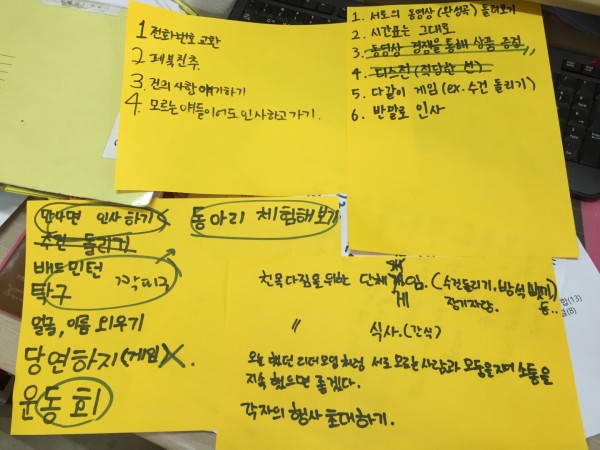 1 전화번호 교환
2 페북친추.
3. 건의 사항 얘기하기
4. 모르는 얘들이어도 인사하고 가기.
1. 서로의 동영상 (완성곡) 돌려보기
2. 시간표는 그대로
3. 동영상 경쟁을 통해 상품 증정
4. 디스전 (적당한 선)
5. 다같이 게임 (ex. 수건 돌리기)
6. 반말로 인사
만나면 인사하기
동아리 체험해보기
수건 돌리기
배드민턴
탁구
깍두기
얼굴, 이름 외우기
당연하지(게임) X.
운동회
친목 다짐을 위한 단체 게임. (수건돌리기, 방석 뺏기)
장기자랑. 등..
〃 식사. (간식)
오늘 했던 리더모임처럼 서로 모르는 사람과 모둠을 지어 소통을
지속 했으면 좋겠다.
각자의 행사 초대하기.
(13)
(8)